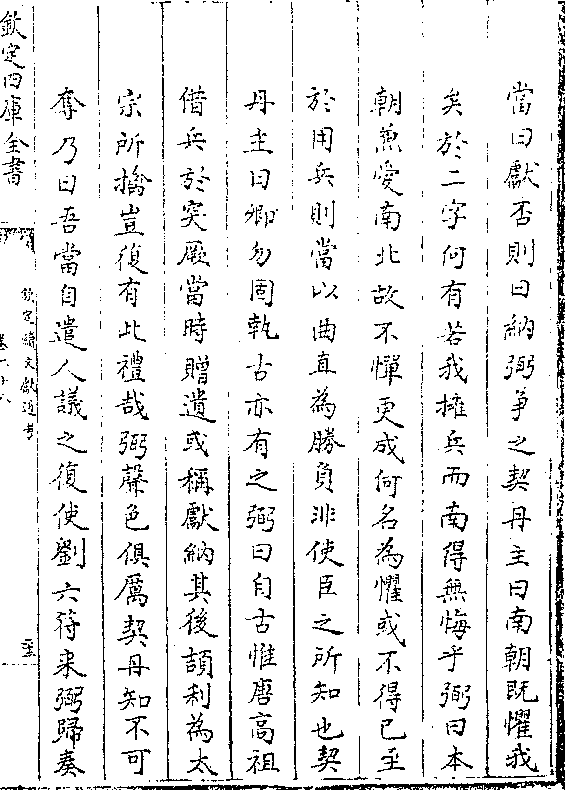 當曰獻否則曰納弼爭之契丹主曰南朝既懼我
矣於二字何有若我擁兵而南得無悔乎弼曰本
朝兼愛南北故不憚更成何名為懼或不得已至
於用兵則當以曲直為勝負非使臣之所知也契
丹主曰卿勿固執古亦有之弼曰自古惟唐高祖
借兵於突厥當時贈遺或稱獻納其後頡利為太
宗所擒豈復有此禮哉弼聲色俱厲契丹知不可
奪乃曰吾當自遣人議之復使劉六符来弼歸奏
欽定四庫全書
欽定續文獻通考